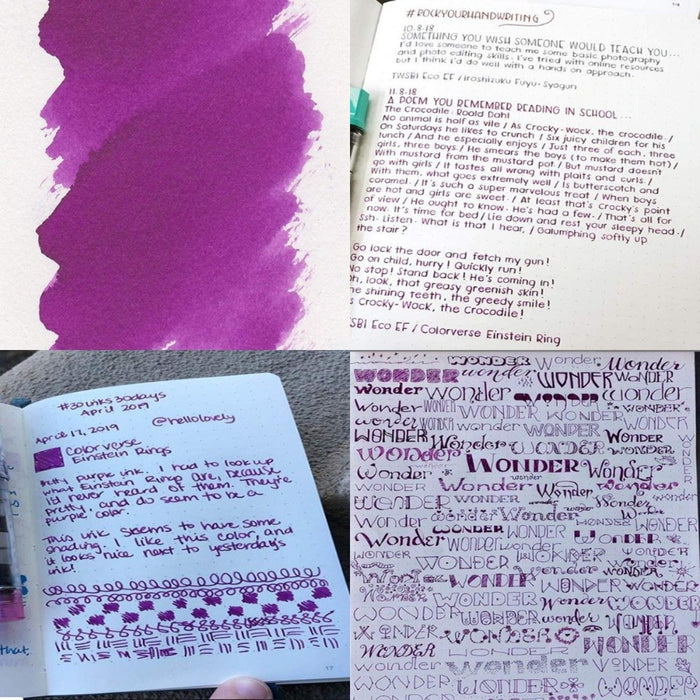 #ROCKYOURHANDWRITING
10.8.18
SOMETHING YOU WISH SOMEONE WOULD TEACH YOU...
I'd love someone to teach me some basic photography
and photo editing skills. I've tried with online resources
but I think I'd do well with a hands on approach.
TWSBI Eco EF / Iroshizuku Fuyu-Syogun
11.8.18
A POEM YOU REMEMBER READING IN SCHOOL...
The Crocodile - Roald Dahl
No animal is half as vile / As Crocky-Wock, the crocodile. /
On Saturdays he likes to crunch / Six juicy children for his
lunch / And he especially enjoys / Just three of each, three
girls, three boys. / He smears the boys (to make them hot) /
With mustard from the mustard pot. / But mustard doesn't
go with girls / It tastes all wrong with plaits and curls /
With them, what goes extremely well / Is butterscotch and
caramel. / It's such a super marvelous treat / When boys
are hot and girls are sweet. / At least that's Crocky's point
of view / He ought to know. He's had a few. / That's all for
now. It's time for bed / Lie down and rest your sleepy head. /
Ssh. Listen. What is that I hear, / Galumphing softly up
the stair?
Go lock the door and fetch my gun!
Go on child, hurry! Quickly run!
No stop! Stand back! He's coming in!
Oh, look, that greasy greenish skin!
he shining teeth, the greedy smile!
s Crocky-Wock, the Crocodile!
SBI Eco EF / Colorverse Einstein Ring
#30inks30days
April 2019
@hellolovely
April 17, 2019
Colorverse
Einstein Rings
Pretty purple ink. I had to look up
what Einstein Rings are, because
I never heard of them. They're
pretty, and do seem to be a
purple color.
This ink seems to have some
shading. I like this color, and
it looks nice next to yesterday's
ink!
that,
WONDER Wonder Wonder
WONDER wonder WONDER WONDER
Wonder wonder wonder
Wonder WONDER WONDER WONDER
wonder WONDER Wonder WONDER
WONDER Wonder WONDER Wonder
Wonder WONDER Wonder
Wonder WONDER Wonder
WONDER Wonder WONDER wonder
WONDER WONDER Wonder Wonder
Wonder Wonder WONDER WONDER
Wonder WONDER WONDER WONDER
WONDER wonder WONDER WONDER
Wonder WONDER WONDER
WONDER WONDER Wonder WONDER
WONDER WONDER wonder Wonder
WONDER WONDER WONDER
WONDER WONDER WONDER
wonder wonder WONDER
WONDER WONDER WONDER